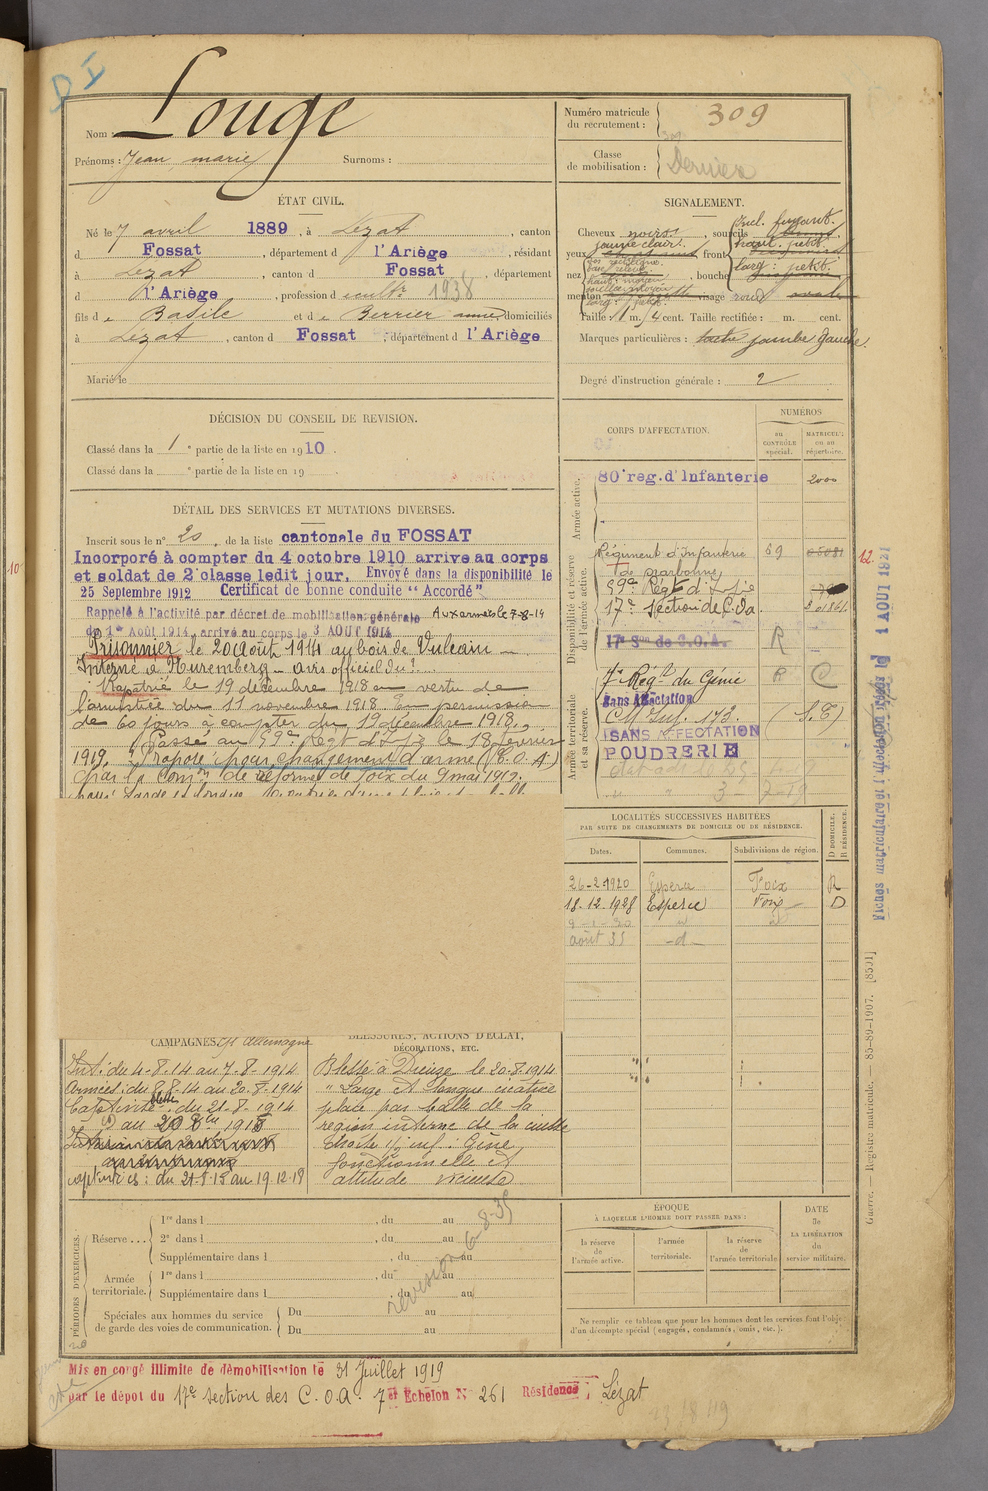 D I
Nom : Louge
Prénoms : Jean marie Surnoms :
Numéro matricule du recrutement : 309
Classe de mobilisation : Dernier
ÉTAT CIVIL.
Né le 7 avril 1889, à Lézat, canton
d Fossat, département d l'Ariège, résidant
à Lézat, canton d Fossat, département
d l'Ariège, profession d cultr 1938
fils d e Basile et d e Berrier anne domiciliés
à Lézat, canton d Fossat, département d l'Ariège
Marié le
SIGNALEMENT.
Cheveux noirs, sourcils
yeux jaune clair, front
Incl. fuyant.
haut. petit.
larg : petit.
nez, bouche
menton visage rond
Taille : 1 m. cent. Taille rectifiée : m. cent.
Marques particulières : jambe Gauche.
Degré d'instruction générale : 2
DÉCISION DU CONSEIL DE REVISION.
Classé dans la 1 e partie de la liste en 1910.
Classé dans la e partie de la liste en 19
DÉTAIL DES SERVICES ET MUTATIONS DIVERSES.
Inscrit sous le n° 20, de la liste cantonale du FOSSAT
Incorporé à compter du 4 octobre 1910 arrive au corps
et soldat de 2e classe ledit jour. Envoyé dans la disponibilité le
25 Septembre 1912 Certificat de bonne conduite "Accordé"
Rappelé à l'activité par décret de mobilisation générale Aux armées le 7-8-14
du 1er Août 1914 arrivé au corps le 3 AOUT 1914
Prisonnier le 20 août 1914 au bois de Vulcain
Interné à Nuremberg avis officiel du
Rapatrié le 19 décembre 1918 en vertu de
l'armistice du 11 novembre 1918. En permission
de 60 jours à compter du 19 décembre 1918.
Passé au 59e Régt d'Infie le 18 février
1919. Proposé pour changement d'arme (C.O.A)
par la Comon de réforme de Foix du 9 mai 1919.
CORPS D'AFFECTATION.
NUMÉROS
au CONTRÔLE spécial.
MATRICULE ou au répertoire.
Armée active.
80e reg. d'Infanterie 2000
Disponibilité et réserve de l'armée active.
Régiment d'Infanterie 59
de Narbonne
59e Régt d'Infie
17e Section de C.O.a
17e Son de C.O.A. R
Armée territoriale et sa réserve.
7e Régt du Génie R
Sans Affectation
CM Inf. 173. (S.E)
SANS AFFECTATION
POUDRERIE
12.
Fiches matriculaire et 1 AOUT 1921
LOCALITÉS SUCCESSIVES HABITÉES
PAR SUITE DE CHANGEMENTS DE DOMICILE OU DE RÉSIDENCE.
Dates. Communes. Subdivisions de région. D DOMICILE. R RÉSIDENCE.
26-2-1920 Foix R
18-12-1928 Foix D
août 35 -d-
CAMPAGNES. Cte allemagne
Int : du 4-8-14 au 7-8-1914
Armées : du 8-8-14 au 20-8-1914
Captivité blessé : du 21-8-1914
au 20 8bre 1915
captivité : du 21-8-15 au 19.12.18
BLESSURES, ACTIONS D'ÉCLAT, DÉCORATIONS, ETC.
Blessé à Dieuze le 20-8-1914
" Large et longue cicatrice
plaie par balle de la
région interne de la cuisse
droite 1/3 inf : Gêne
fonctionnelle et
attitude vicieuse
PÉRIODES D'EXERCICES.
Réserve ...
1re dans l, du au
2e dans l, du au
Supplémentaire dans l, du au
Armée territoriale.
1re dans l, du au
Supplémentaire dans l, du au
Spéciales aux hommes du service de garde des voies de communication.
Du au
Du au
révision 6-8-35
ÉPOQUE
À LAQUELLE L'HOMME DOIT PASSER DANS :
la réserve de l'armée active.
l'armée territoriale.
la réserve de l'armée territoriale
DATE de LA LIBÉRATION du service militaire.
Ne remplir ce tableau que pour les hommes dont les services font l'objet
d'un décompte spécial (engagés, condamnés, omis, etc.).
Guerre. — Registre matricule. — 85-89-1907. [8501]
Mis en congé illimité de démobilisation le 31 Juillet 1919
par le dépôt du 17e section des C.O.A. 7er Echelon N° 261 Résidence : Lézat